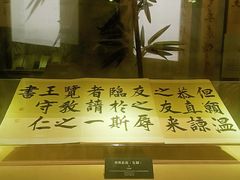 但願溫
恭直諒
之友來
友之辱
臨於斯
者請一
覽教之
王守仁
書